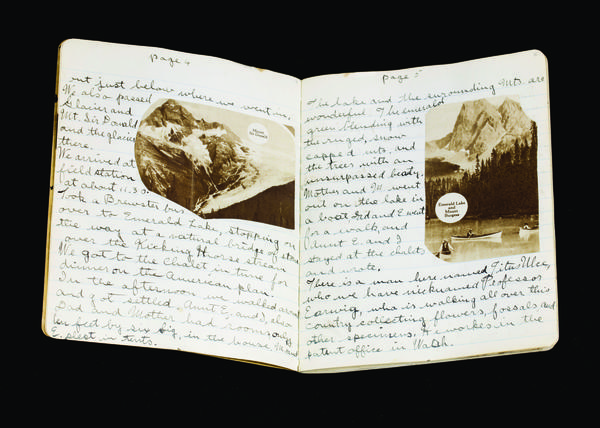 page 4
out just below where we went in.
We also passed
Glacier and
Mt. Sir Donald
and the glacier
there.
We arrived at
field station
at about 11.30.
Took a Brewster bus
over to Emerald Lake, stopping on
the way at a natural bridge of stone
over the Kicking Horse stream
We got to the Chalet in time for
dinner on the American plan.
In the afternoon we walked around
and got settled. Aunt E. and I, also
Dad and Mother, had rooms only
ten feet by six big, in the house. M. and
E. slept in tents.
page 5
The lake and the surrounding Mts. are
wonderful. The emerald
green blending with
the rugged, snow
capped mts. and
the trees, with an
unsurpassed beauty.
Mother and M. went
out on the lake in
a boat Dad and E. went
for a walk, and
Aunt E. and I
stayed at the chalet
and wrote.
There is a man here named Titus Ulke,
who we have nicknamed Professor
Earwig, who is walking all over this
country collecting flowers, fossals and
other specimens. He workes in the
patent office in Wash.
Emerald Lake
and
Mount
Burgess